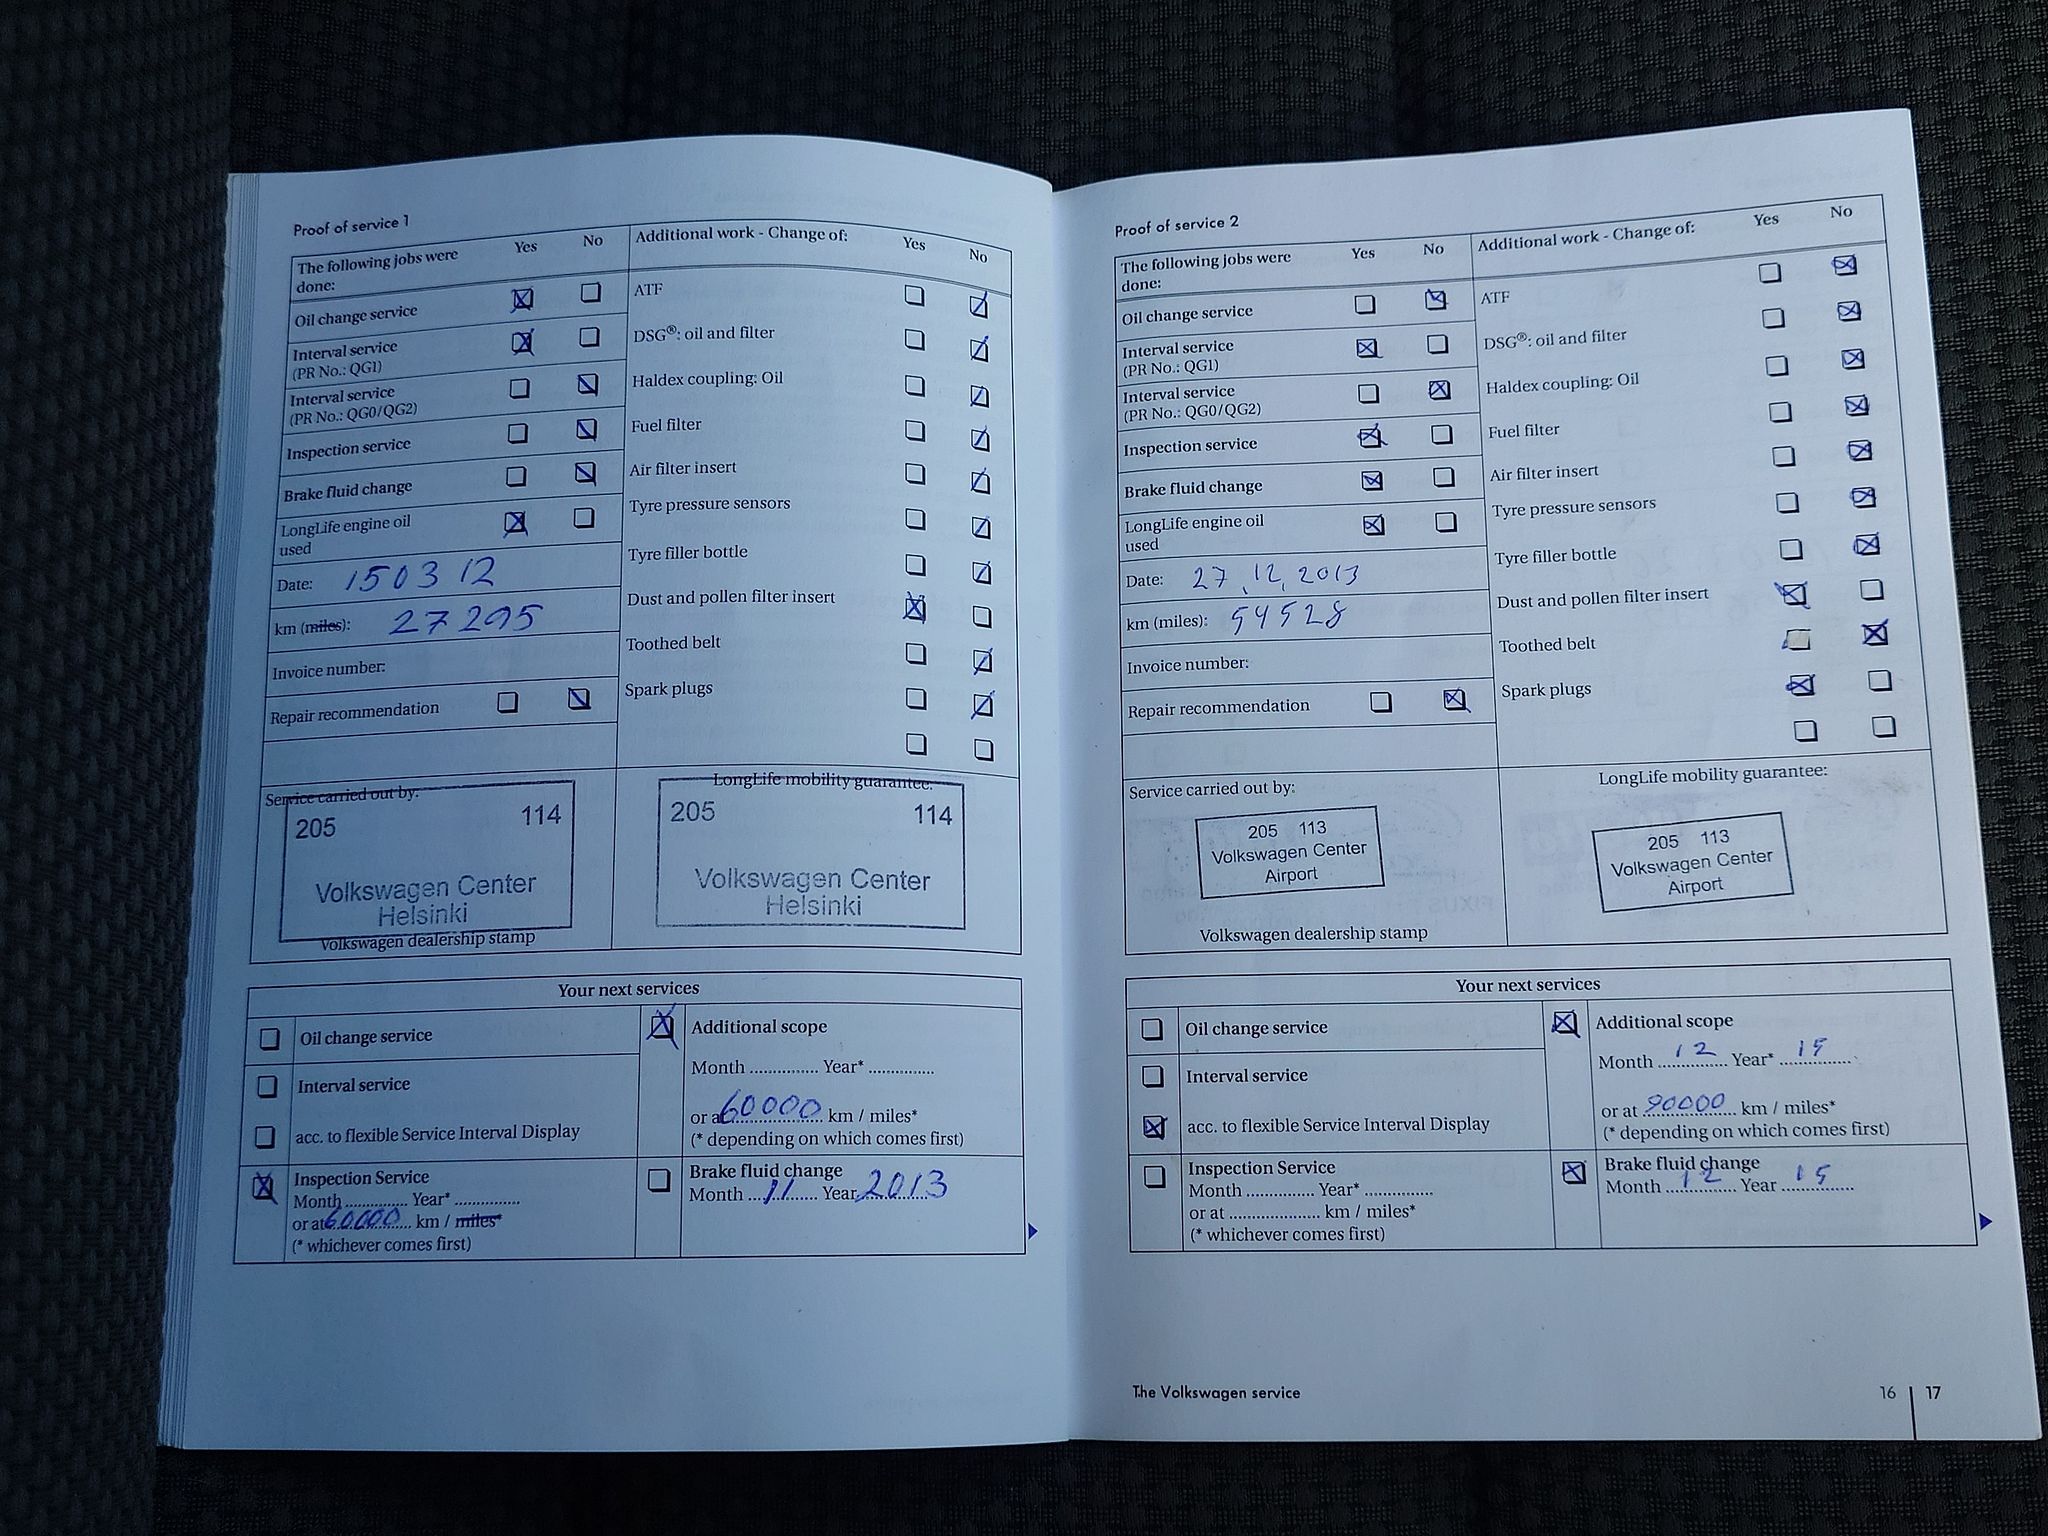 Proof of service 1
The following jobs were
done:
Yes No
Oil change service
Interval service
(PR No.: QG1)
Interval service
(PR No.: QG0/QG2)
Inspection service
Brake fluid change
LongLife engine oil
used
Date: 150312
km (miles): 27295
Invoice number:
Repair recommendation
Additional work - Change of: Yes No
ATF
DSG®: oil and filter
Haldex coupling: Oil
Fuel filter
Air filter insert
Tyre pressure sensors
Tyre filler bottle
Dust and pollen filter insert
Toothed belt
Spark plugs
Service carried out by:
205 114
Volkswagen Center
Helsinki
Volkswagen dealership stamp
LongLife mobility guarantee:
205 114
Volkswagen Center
Helsinki
Your next services
Oil change service
Interval service
acc. to flexible Service Interval Display
Inspection Service
Month .............. Year* ..............
or at 60000 km / miles*
(* whichever comes first)
Additional scope
Month .............. Year* ..............
or at 60000 km / miles*
(* depending on which comes first)
Brake fluid change
Month 11 Year 2013
Proof of service 2
The following jobs were
done:
Yes No
Oil change service
Interval service
(PR No.: QG1)
Interval service
(PR No.: QG0/QG2)
Inspection service
Brake fluid change
LongLife engine oil
used
Date: 27.12.2013
km (miles): 54528
Invoice number:
Repair recommendation
Additional work - Change of: Yes No
ATF
DSG®: oil and filter
Haldex coupling: Oil
Fuel filter
Air filter insert
Tyre pressure sensors
Tyre filler bottle
Dust and pollen filter insert
Toothed belt
Spark plugs
Service carried out by:
205 113
Volkswagen Center
Airport
Volkswagen dealership stamp
LongLife mobility guarantee:
205 113
Volkswagen Center
Airport
Your next services
Oil change service
Interval service
acc. to flexible Service Interval Display
Inspection Service
Month .............. Year* ..............
or at .................... km / miles*
(* whichever comes first)
Additional scope
Month 12 Year* 15
or at 90000 km / miles*
(* depending on which comes first)
Brake fluid change
Month 12 Year 15
The Volkswagen service
16 | 17